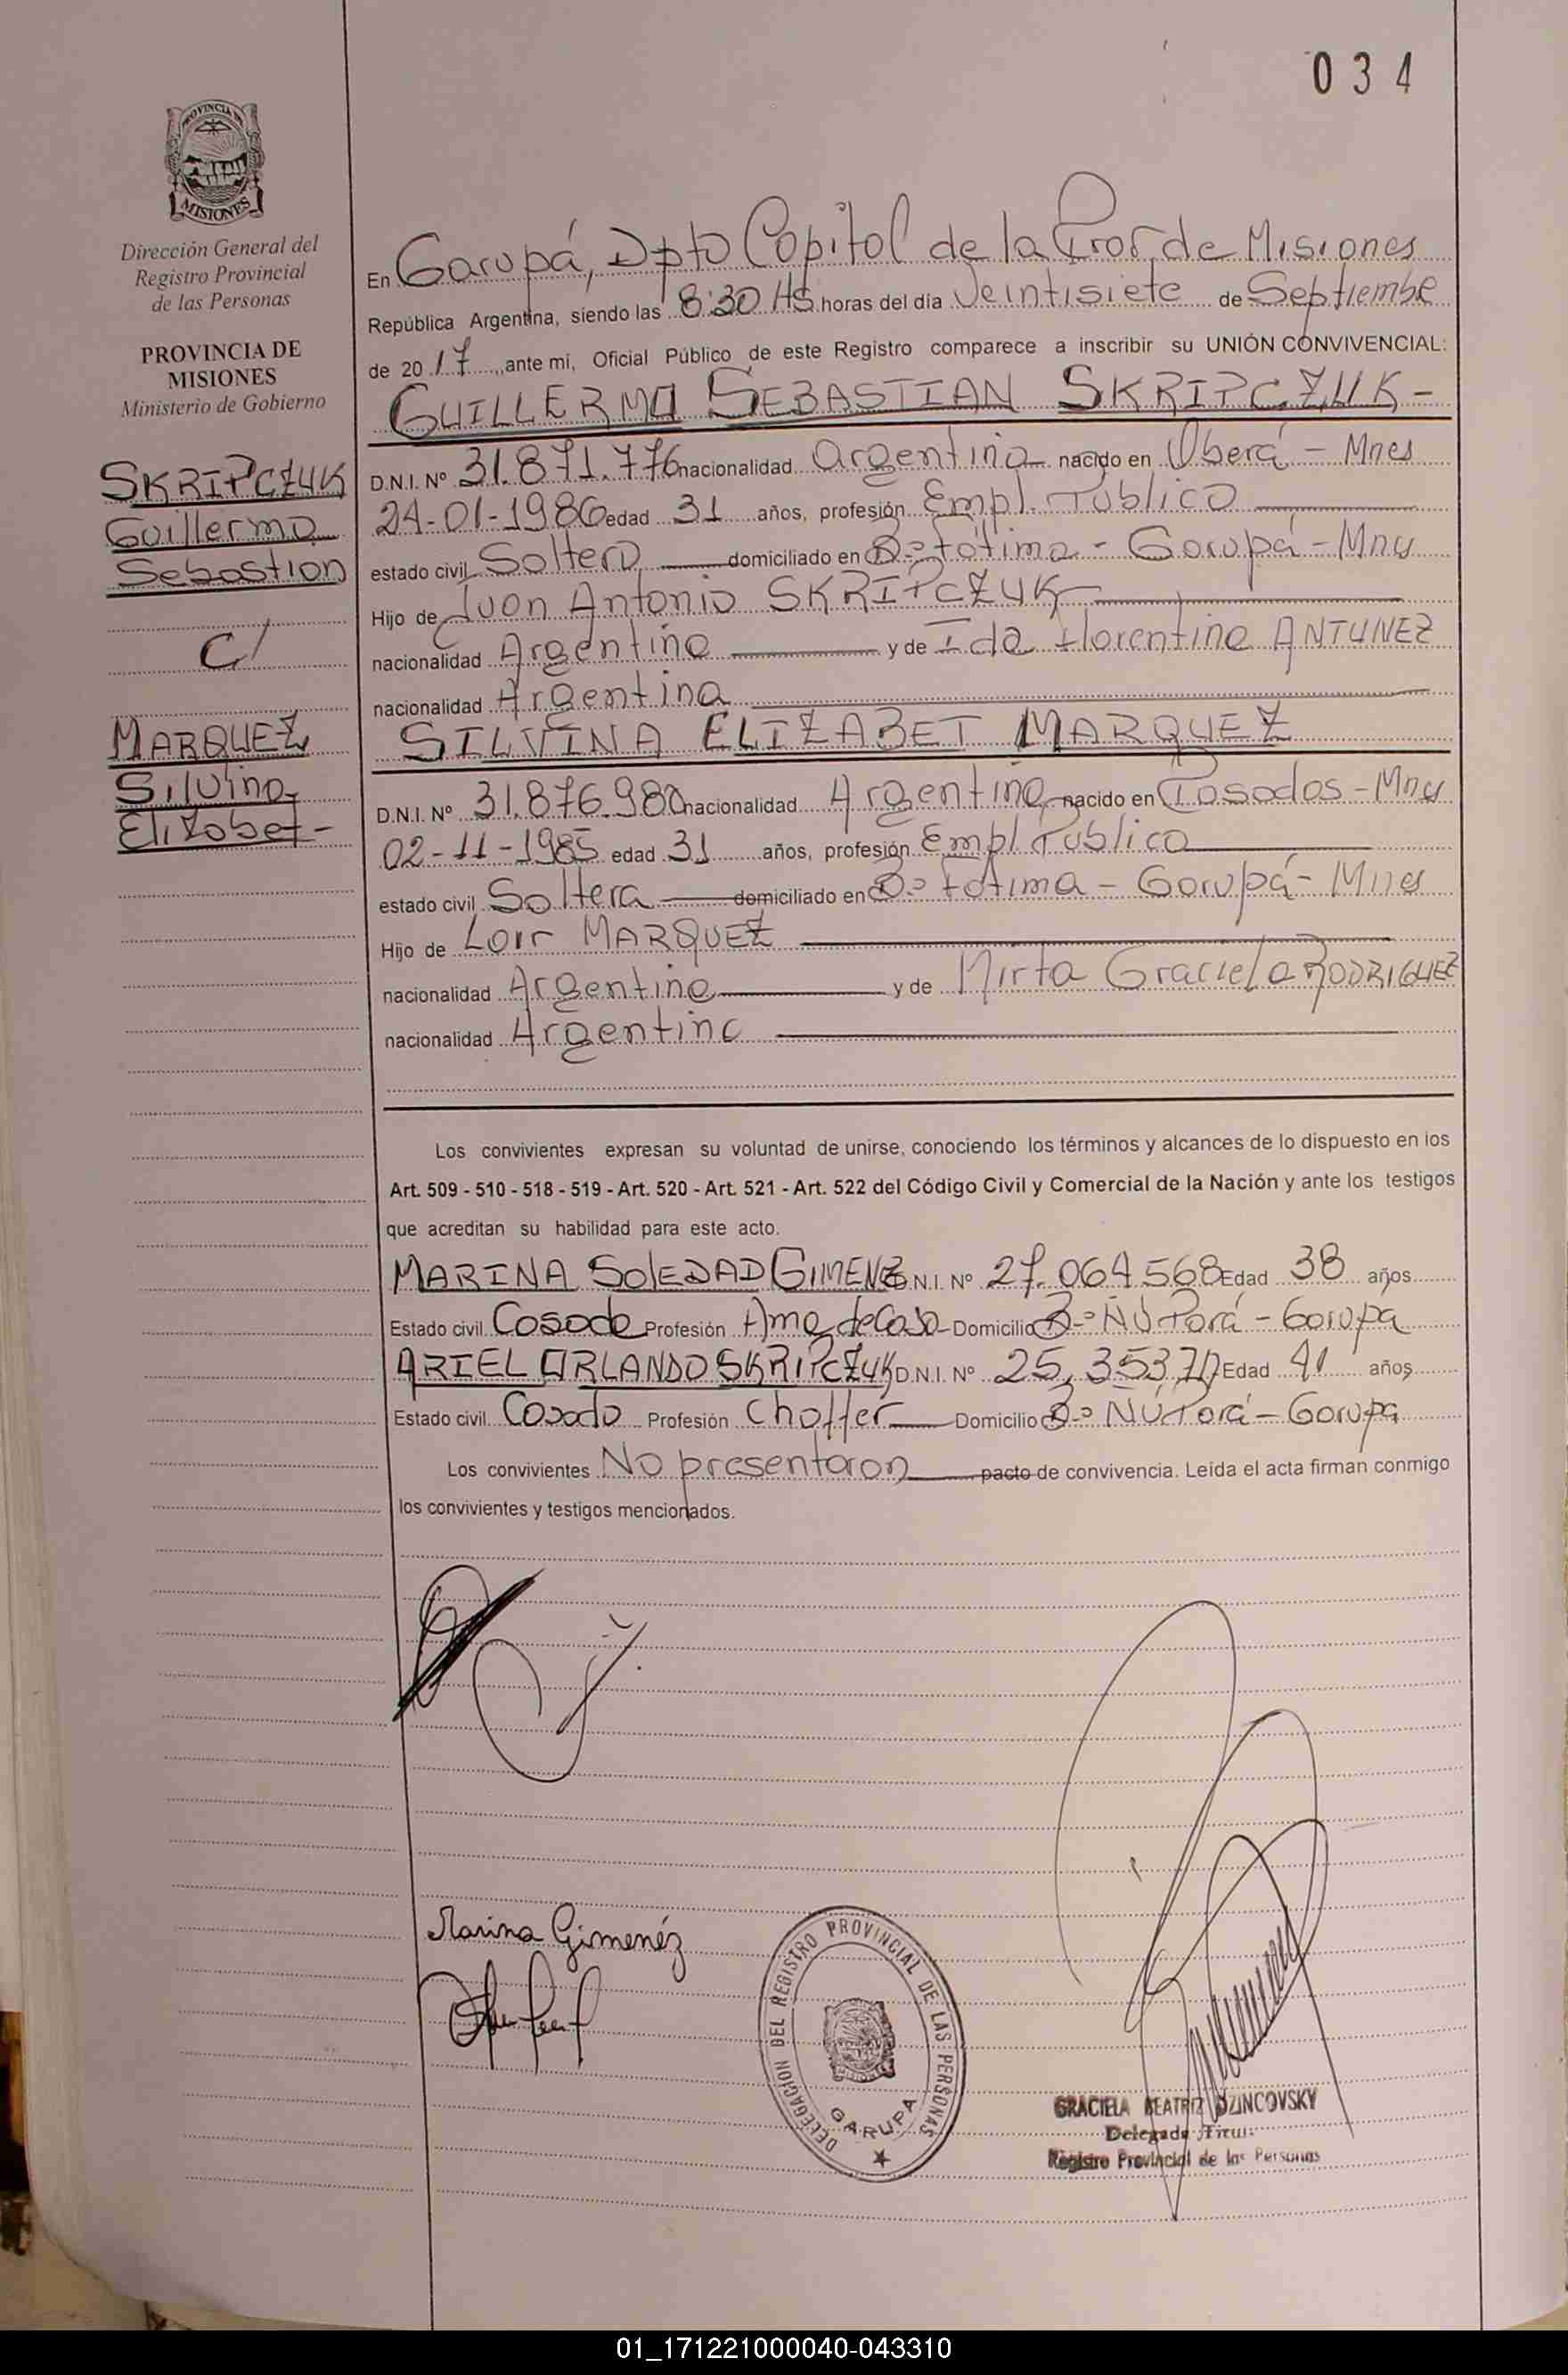 034
PROVINCIA DE
MISIONES
Dirección General del
Registro Provincial
de las Personas
PROVINCIA DE
MISIONES
Ministerio de Gobierno
SKRIPCZUK
Guillermo
Sebastian
C/
MARQUEZ
Silvina
Elizabet-
En Garupá, Dpto Capital de la Prov. de Misiones
República Argentina, siendo las 8:30 HS horas del día Veintisiete de Septiembre
de 2017, ante mi, Oficial Público de este Registro comparece a inscribir su UNIÓN CONVIVENCIAL:
GUILLERMO SEBASTIAN SKRIPCZUK-
D.N.I. Nº 31.871.776 nacionalidad Argentina nacido en Oberá - Mnes
24-01-1986 edad 31 años, profesión Empl. Público
estado civil Soltero domiciliado en Bº Fátima - Garupá - Mnes
Hijo de Juan Antonio SKRIPCZUK
nacionalidad Argentina y de Ida Florentina ANTUNEZ
nacionalidad Argentina
SILVINA ELIZABET MARQUEZ
D.N.I. Nº 31.876.980 nacionalidad Argentina nacido en Posadas - Mnes
02-11-1985 edad 31 años, profesión Empl Público
estado civil Soltera domiciliado en Bº Fátima - Garupá - Mnes
Hijo de Loir MARQUEZ
nacionalidad Argentina y de Mirta Graciela RODRIGUEZ
nacionalidad Argentina
Los convivientes expresan su voluntad de unirse, conociendo los términos y alcances de lo dispuesto en los
Art. 509 - 510 - 518 - 519 - Art. 520 - Art. 521 - Art. 522 del Código Civil y Comercial de la Nación y ante los testigos
que acreditan su habilidad para este acto.
MARINA SOLEDAD GIMENEZ D.N.I. Nº 27.064.568 Edad 38 años
Estado civil Casada Profesión Ama de Casa Domicilio Bº Ñu Porá - Garupa
ARIEL ORLANDO SKRIPCZUK D.N.I. Nº 25.353.717 Edad 41 años
Estado civil Casado Profesión Choffer Domicilio Bº Ñu Porá - Garupa
Los convivientes No presentaron pacto de convivencia. Leída el acta firman conmigo
los convivientes y testigos mencionados.
Marina Gimenéz
DELEGACION DEL REGISTRO PROVINCIAL DE LAS PERSONAS
GARUPA
GRACIELA BEATRIZ DZINCOVSKY
Delegada Titul
Registro Provincial de las Personas
01_171221000040-043310